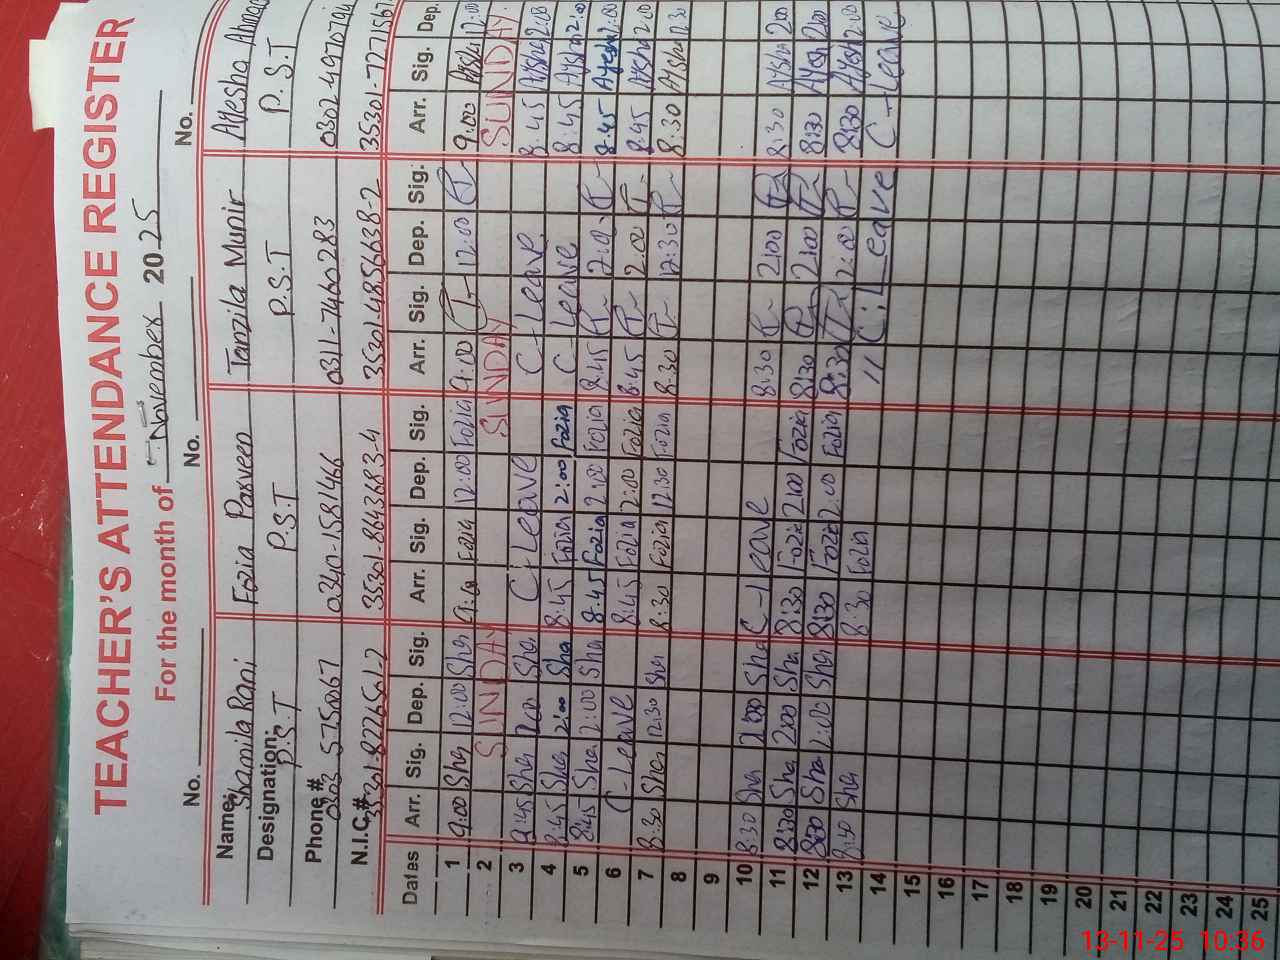 TEACHER'S ATTENDANCE REGISTER
For the month of November 2025
No. No. No.
Name: Shamila Rani Fozia Parveen Tanzila Munir Ayesha Ahmad
Designation: P.S.T P.S.T P.S.T P.S.T
Phone # 0340-1581466 0311-7460283 0302-4970794
N.I.C.# 35301-8643683-4 35301-4856638-2
Dates Arr. Sig. Dep. Sig. Arr. Sig. Dep. Sig. Arr. Sig. Dep. Sig. Arr. Sig. Dep.
1 9:00 Sha 12:00 Sha Fozia 12:00 Fozia 9:00 12:00 9:00 Aysha 12:00
2 SUNDAY SUNDAY SUNDAY
3 8:45 Sha 2:00 Sha C-Leave C-Leave 8:45 Aysha 2:00
4 8:45 Sha 2:00 Sha 8:45 Fozia 2:00 Fozia C-Leave 8:45 Aysha 2:00
5 8:45 Sha 2:00 Sha 8:45 Fozia 2:00 Fozia 8:45 2:00 8:45 Ayesha 2:00
6 C-Leave 8:45 Fozia 2:00 Fozia 8:45 2:00 8:45 Aysha 2:00
7 8:30 Sha 12:30 Sha 8:30 Fozia 12:30 Fozia 8:30 12:30 8:30 Aysha 12:30
8
9
10 8:30 Sha 2:00 Sha C-Leave 8:30 2:00 8:30 Aysha 2:00
11 8:30 Sha 2:00 Sha 8:30 Fozia 2:00 Fozia 8:30 2:00 8:30 Aysha 2:00
12 8:30 Sha 2:00 Sha 8:30 Fozia 2:00 Fozia 8:30 2:00 8:30 Aysha 2:00
13 8:30 Sha 8:30 Fozia // C.Leave C-Leave
14
15
16
17
18
19
20
21
22
23
24
25
13-11-25 10:36